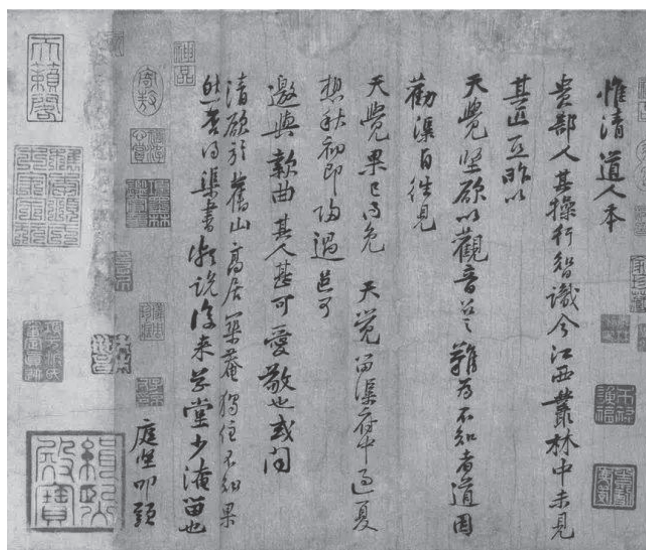 惟清道人本
貴部人其操行智識今江西叢林中未見
其匹亞昨以
天覺堅欲以觀音召之難為不知者道因
勸渠自往見
天覺果已得免 天覺留渠府中過夏
想秋初即歸過邑可
邀與款曲其人甚可愛敬也或聞
清欲於舊山高居築菴獨住不知果
然否得渠書頗說後來草堂少淹留也
庭堅叩頭
神品
寄敖
天籟閣
緝熙殿寶